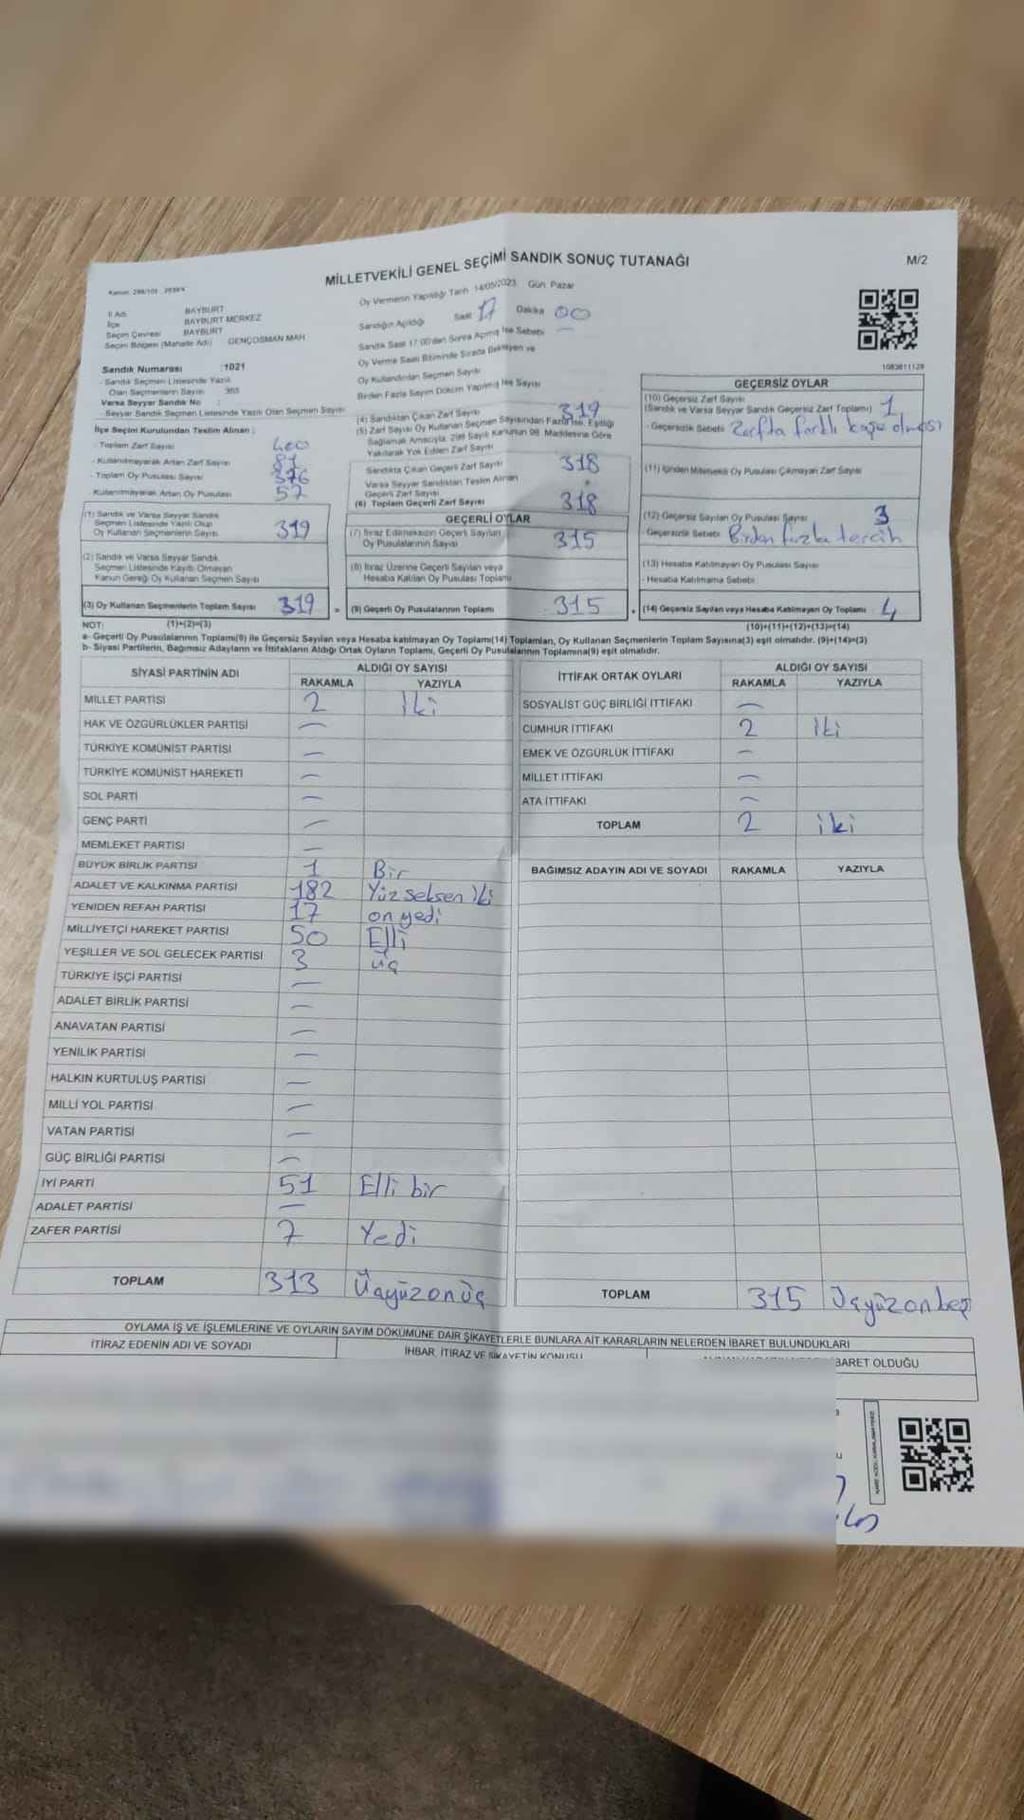 MİLLETVEKİLİ GENEL SEÇİMİ SANDIK SONUÇ TUTANAĞI
M/2
Oy Vermenin Yapıldığı Tarih 14/05/2023 Gün: Pazar
İl Adı BAYBURT
İlçe BAYBURT MERKEZ
Seçim Çevresi BAYBURT
Seçim Bölgesi (Mahalle Adı) GENÇOSMAN MAH
Sandığın Açıldığı Saat 17 Dakika 00
Sandık Saat 17:00'dan Sonra Açılmış İse Sebebi —
Oy Verme Saati Bitiminde Sırada Bekleyen ve
Oy Kullandırılan Seçmen Sayısı
Birden Fazla Sayım Döküm Yapılmış İse Sayısı
Sandık Numarası :1021
- Sandık Seçmen Listesinde Yazılı
Olan Seçmenlerin Sayısı
Varsa Seyyar Sandık No :
- Seyyar Sandık Seçmen Listesinde Yazılı Olan Seçmen Sayısı
İlçe Seçim Kurulundan Teslim Alınan :
- Toplam Zarf Sayısı 400
- Kullanılmayarak Artan Zarf Sayısı 81
- Toplam Oy Pusulası Sayısı 376
Kullanılmayarak Artan Oy Pusulası 57
(1) Sandık ve Varsa Seyyar Sandık
Seçmen Listesinde Yazılı Olup
Oy Kullanan Seçmenlerin Sayısı 319
(2) Sandık ve Varsa Seyyar Sandık
Seçmen Listesinde Kayıtlı Olmayan
Kanun Gereği Oy Kullanan Seçmen Sayısı
(3) Oy Kullanan Seçmenlerin Toplam Sayısı 319
(4) Sandıktan Çıkan Zarf Sayısı 319
(5) Zarf Sayısı Oy Kullanan Seçmen Sayısından Fazla İse, Eşitliği
Sağlamak Amacıyla, 298 Sayılı Kanunun 98. Maddesine Göre
Yakılarak Yok Edilen Zarf Sayısı
Sandıkta Çıkan Geçerli Zarf Sayısı 318
Varsa Seyyar Sandıktan Teslim Alınan
Geçerli Zarf Sayısı
(6) Toplam Geçerli Zarf Sayısı 318
GEÇERLİ OYLAR
(7) İtiraz Edilmeksizin Geçerli Sayılan
Oy Pusulalarının Sayısı 315
(8) İtiraz Üzerine Geçerli Sayılan veya
Hesaba Katılan Oy Pusulası Toplamı
= (9) Geçerli Oy Pusulalarının Toplamı 315
1083811128
GEÇERSİZ OYLAR
(10) Geçersiz Zarf Sayısı
(Sandık ve Varsa Seyyar Sandık Geçersiz Zarf Toplamı) 1
- Geçersizlik Sebebi Zarfta farklı kaşe olması
(11) İçinden Milletvekili Oy Pusulası Çıkmayan Zarf Sayısı
(12) Geçersiz Sayılan Oy Pusulası Sayısı 3
- Geçersizlik Sebebi Birden fazla tercih
(13) Hesaba Katılmayan Oy Pusulası Sayısı
- Hesaba Katılmama Sebebi
(14) Geçersiz Sayılan veya Hesaba Katılmayan Oy Toplamı 4
NOT: (1)+(2)=(3)
(10)+(11)+(12)+(13)=(14)
a- Geçerli Oy Pusulalarının Toplamı(9) ile Geçersiz Sayılan veya Hesaba katılmayan Oy Toplamı(14) Toplamları, Oy Kullanan Seçmenlerin Toplam Sayısına(3) eşit olmalıdır. (9)+(14)=(3)
b- Siyasi Partilerin, Bağımsız Adayların ve İttifakların Aldığı Ortak Oyların Toplamı, Geçerli Oy Pusulalarının Toplamına(9) eşit olmalıdır.
SİYASİ PARTİNİN ADI ALDIĞI OY SAYISI
RAKAMLA YAZIYLA
MİLLET PARTİSİ 2 İki
HAK VE ÖZGÜRLÜKLER PARTİSİ —
TÜRKİYE KOMÜNİST PARTİSİ —
TÜRKİYE KOMÜNİST HAREKETİ —
SOL PARTİ —
GENÇ PARTİ —
MEMLEKET PARTİSİ —
BÜYÜK BİRLİK PARTİSİ 1 Bir
ADALET VE KALKINMA PARTİSİ 182 Yüz seksen iki
YENİDEN REFAH PARTİSİ 17 on yedi
MİLLİYETÇİ HAREKET PARTİSİ 50 Elli
YEŞİLLER VE SOL GELECEK PARTİSİ 3 üç
TÜRKİYE İŞÇİ PARTİSİ —
ADALET BİRLİK PARTİSİ —
ANAVATAN PARTİSİ —
YENİLİK PARTİSİ —
HALKIN KURTULUŞ PARTİSİ —
MİLLİ YOL PARTİSİ —
VATAN PARTİSİ —
GÜÇ BİRLİĞİ PARTİSİ —
İYİ PARTİ 51 Elli bir
ADALET PARTİSİ —
ZAFER PARTİSİ 7 Yedi
TOPLAM 313 Üçyüzonüç
İTTİFAK ORTAK OYLARI ALDIĞI OY SAYISI
RAKAMLA YAZIYLA
SOSYALİST GÜÇ BİRLİĞİ İTTİFAKI —
CUMHUR İTTİFAKI 2 İki
EMEK VE ÖZGÜRLÜK İTTİFAKI —
MİLLET İTTİFAKI —
ATA İTTİFAKI —
TOPLAM 2 iki
BAĞIMSIZ ADAYIN ADI VE SOYADI RAKAMLA YAZIYLA
TOPLAM 315 Üçyüzonbeş
OYLAMA İŞ VE İŞLEMLERİNE VE OYLARIN SAYIM DÖKÜMÜNE DAİR ŞİKAYETLERLE BUNLARA AİT KARARLARIN NELERDEN İBARET BULUNDUKLARI
İTİRAZ EDENİN ADI VE SOYADI
İHBAR, İTİRAZ VE ŞİKAYETİN KONUSU
BARET OLDUĞU